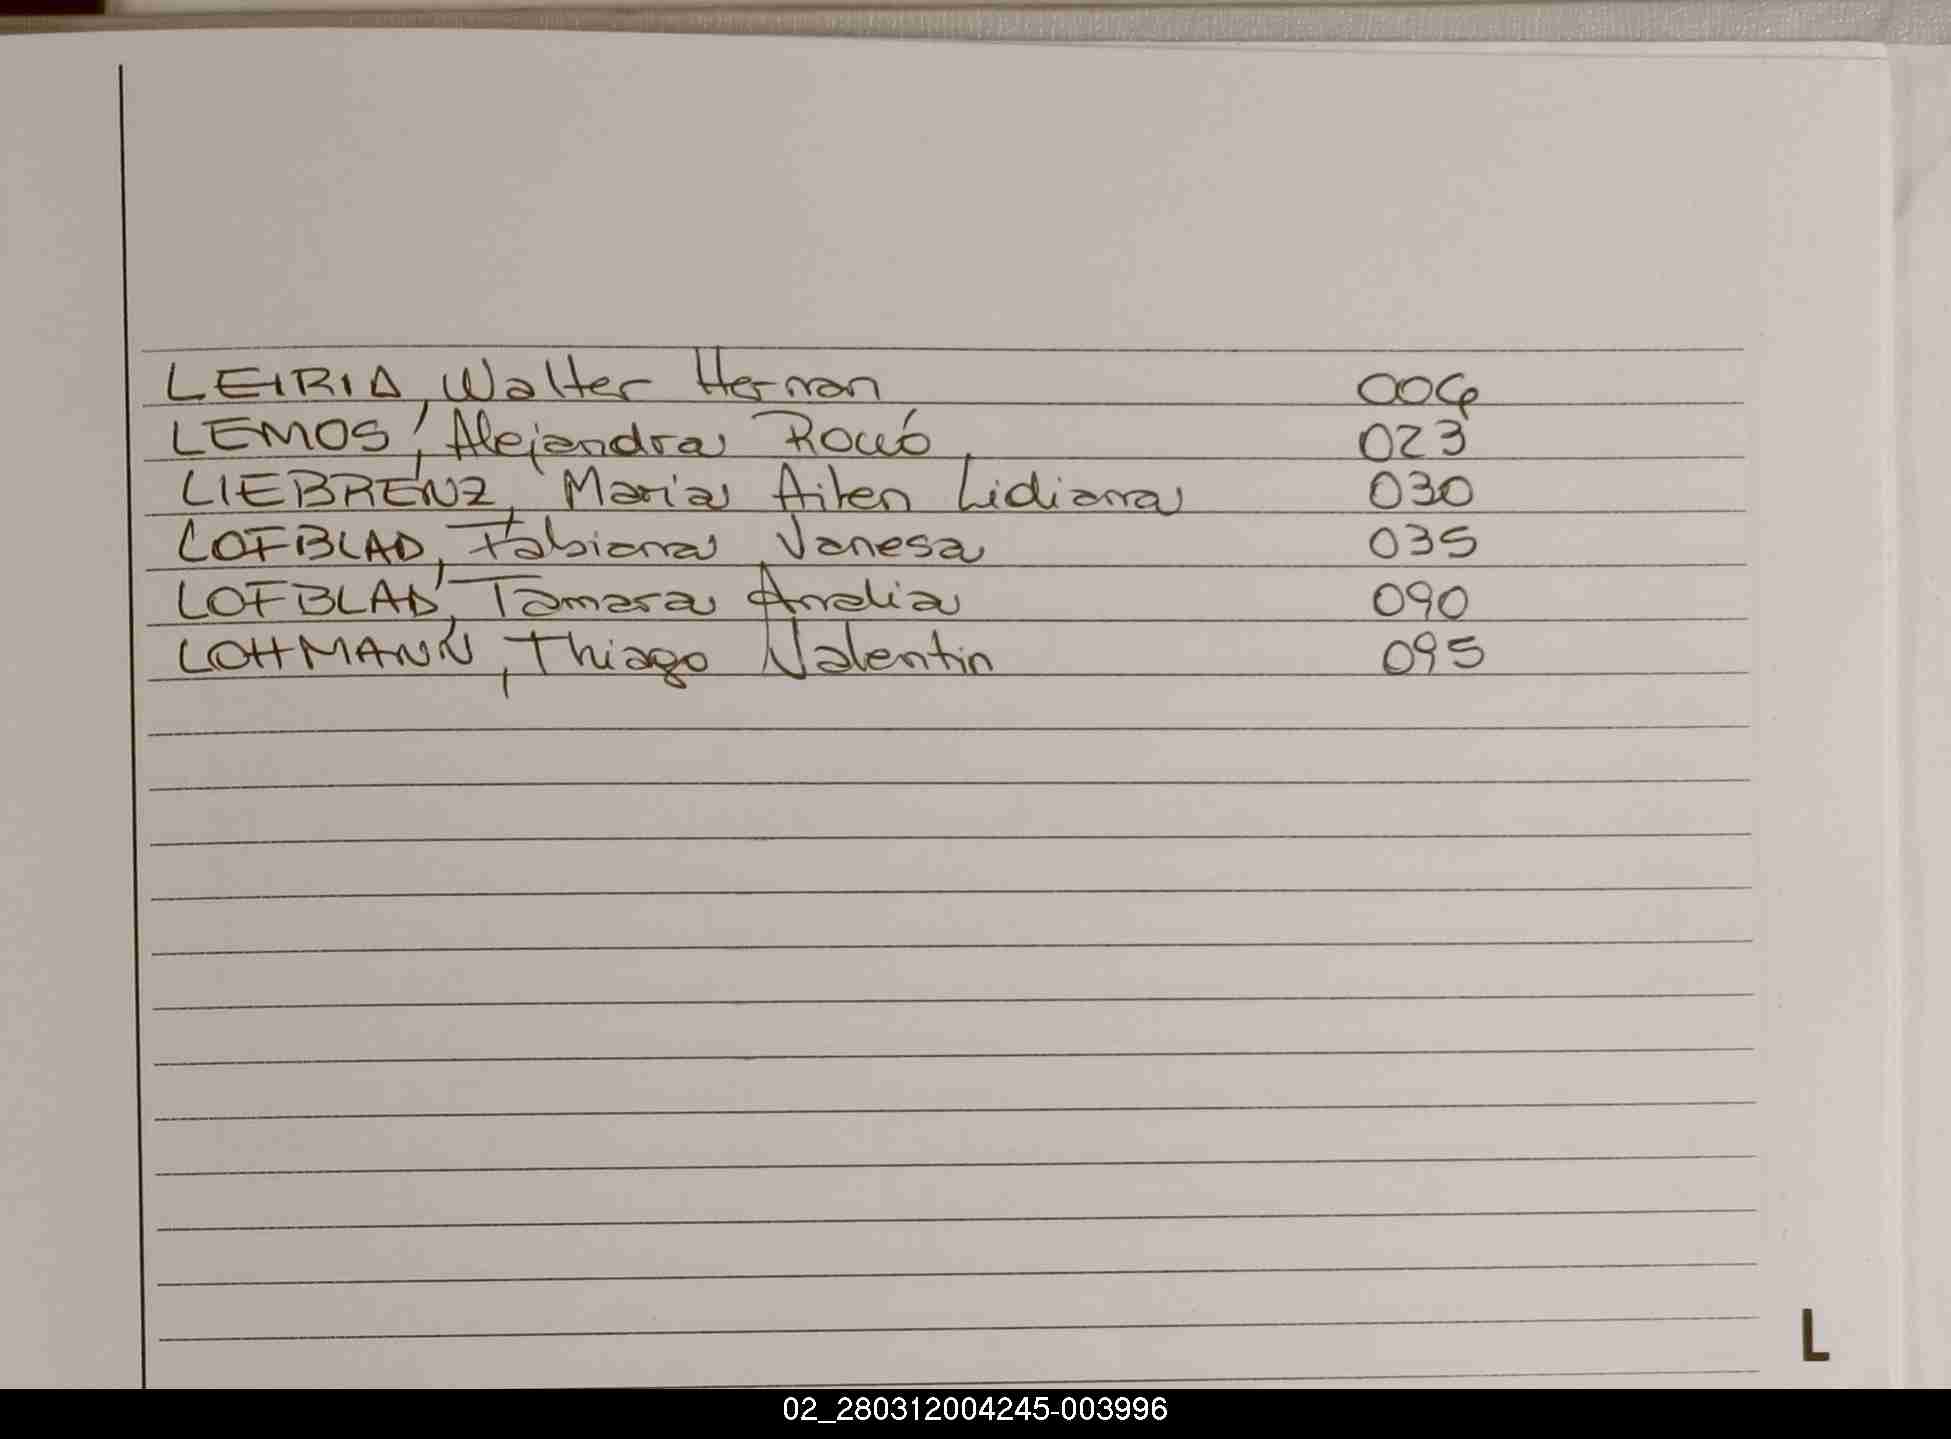 LEIRIA, Walter Hernan 004
LEMOS, Alejandra Roció 023
LIEBRENZ, Maria Ailen Lidiana 030
LOFBLAD, Fabiana Vanesa 035
LOFBLAD, Tamara Analia 090
LOHMANN, Thiago Valentin 095
L
02_280312004245-003996